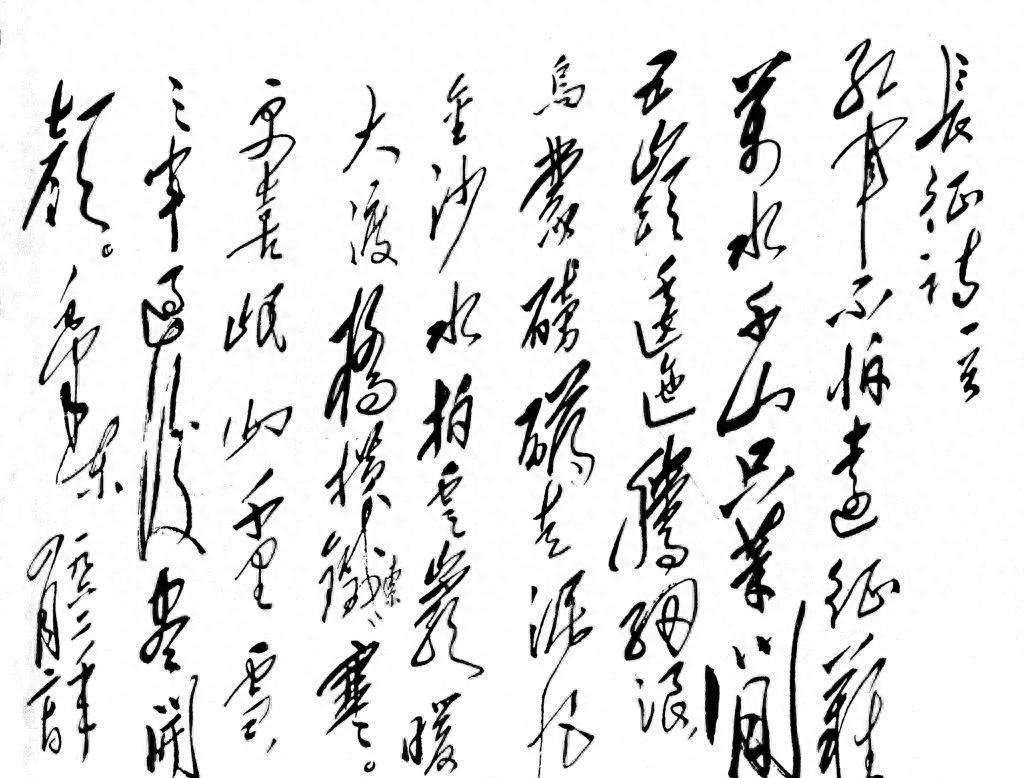 長征詩一首
紅軍不怕遠征難
萬水千山只等閒
五嶺逶迤騰細浪,
烏蒙磅礴走泥丸
金沙水拍雲巖暖
大渡橋橫鐵索寒。
更喜岷山千里雪,
三軍過後盡開
顏。毛澤東
一九六二年
四月